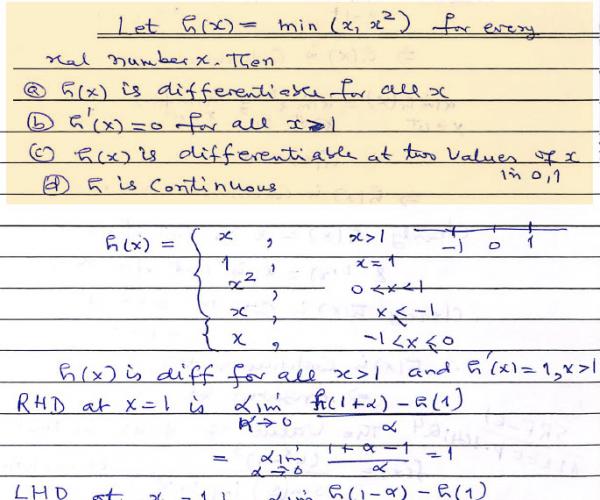 Let h(x) = min (x, x²) for every
real number x. Then
(a) h(x) is differentiable for all x
(b) h'(x) = 0 for all x > 1
(c) h(x) is differentiable at two values of x
in 0,1
(d) h is continuous
h(x) = { x , x > 1
1 , x = 1
x² , 0 < x < 1
x , x ≤ -1
x , -1 < x ≤ 0
-1 0 1
h(x) is diff for all x > 1 and h'(x) = 1, x > 1
RHD at x = 1 is lim α→0 h(1+α) - h(1) / α
= lim α→0 1 + α - 1 / α = 1
LHD at x = 1 lim h(1-α) - h(1)